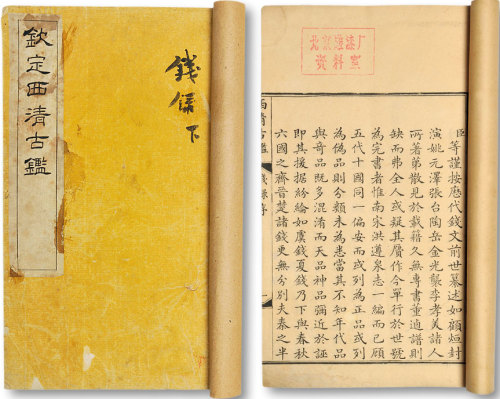 欽定西清古鑑
錢
下
北京雕漆厂
资料室
臣等謹按厯代錢文前世纂述如顧烜封
演姚元澤張台陶岳金光襲李孝美諸人
所著第散見於載籍久無專書董逌譜則
缺而弗全人或疑其贋作今單行於世號
為完書者惟南宋洪遵泉志一編而已顧
五代十國同一偏安而或列為正品或列
為偽品則分類未為悉當其不知年代品
與奇品既多混淆而天品神品彌近於誣
即其援据紛綸如虞錢夏錢乃下與春秋
六國之齊晉楚諸錢更無分別夫秦之半
西清古鑑